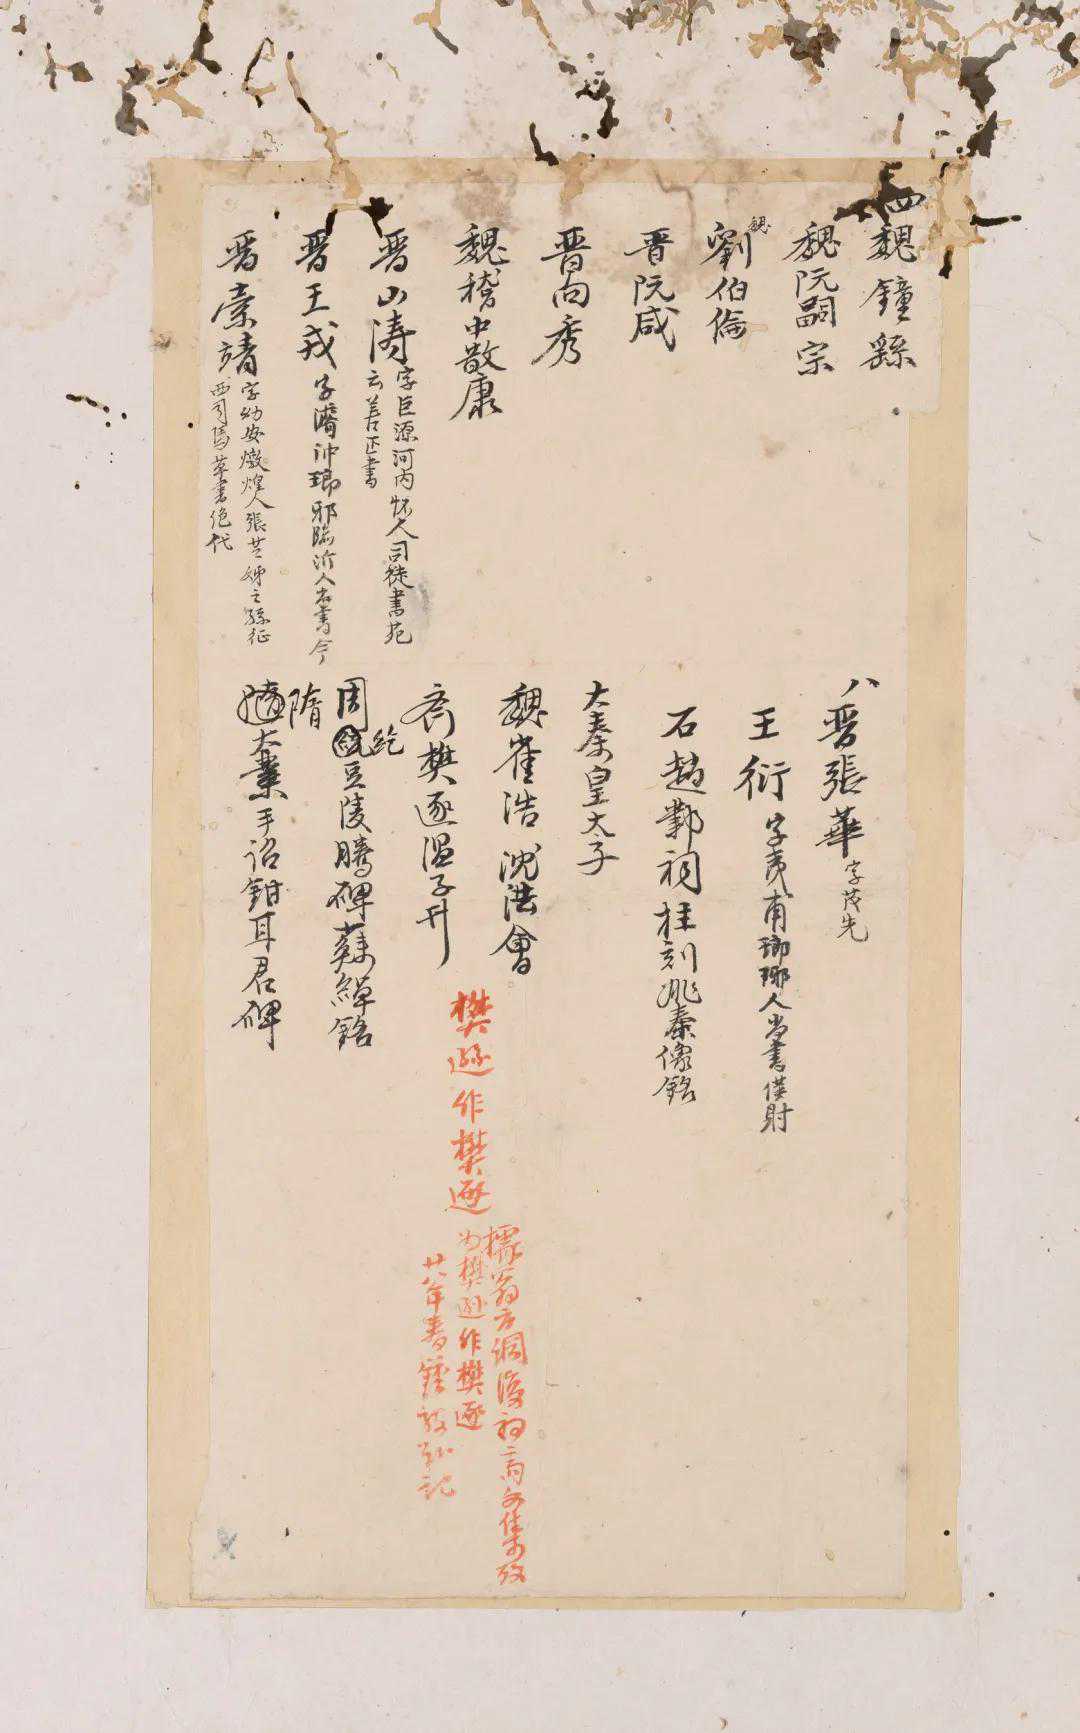 四魏鍾繇
魏阮嗣宗
魏劉伯倫
晋阮咸
晋向秀
魏嵇中散康
晋山涛字巨源河内怀人司徒書苑
云善正書
晋王戎字濬沖瑯邪臨沂人尚書令
晋索靖字幼安燉煌人張芝姊之孫征
西司馬草書绝代
八晋張華字茂先
王衍字夷甫瑯琊人尚書僕射
石趙鄴祠柱刻姚秦像銘
大秦皇太子
魏崔浩沈洪會
齐樊逐温子升
周紇豆陵騰碑蘇綽銘
隋大業手诏鉗耳君碑
樊遜作樊逐
據翁方綱復初斋文集改
为樊遜作樊逐
廿八年春